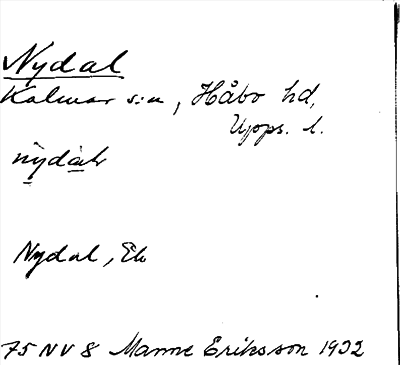 Nydal
Kalmar s:n, Håbo hd,
Upps. l.
Nydal, Ek
75 NV 8 Manne Eriksson 1932